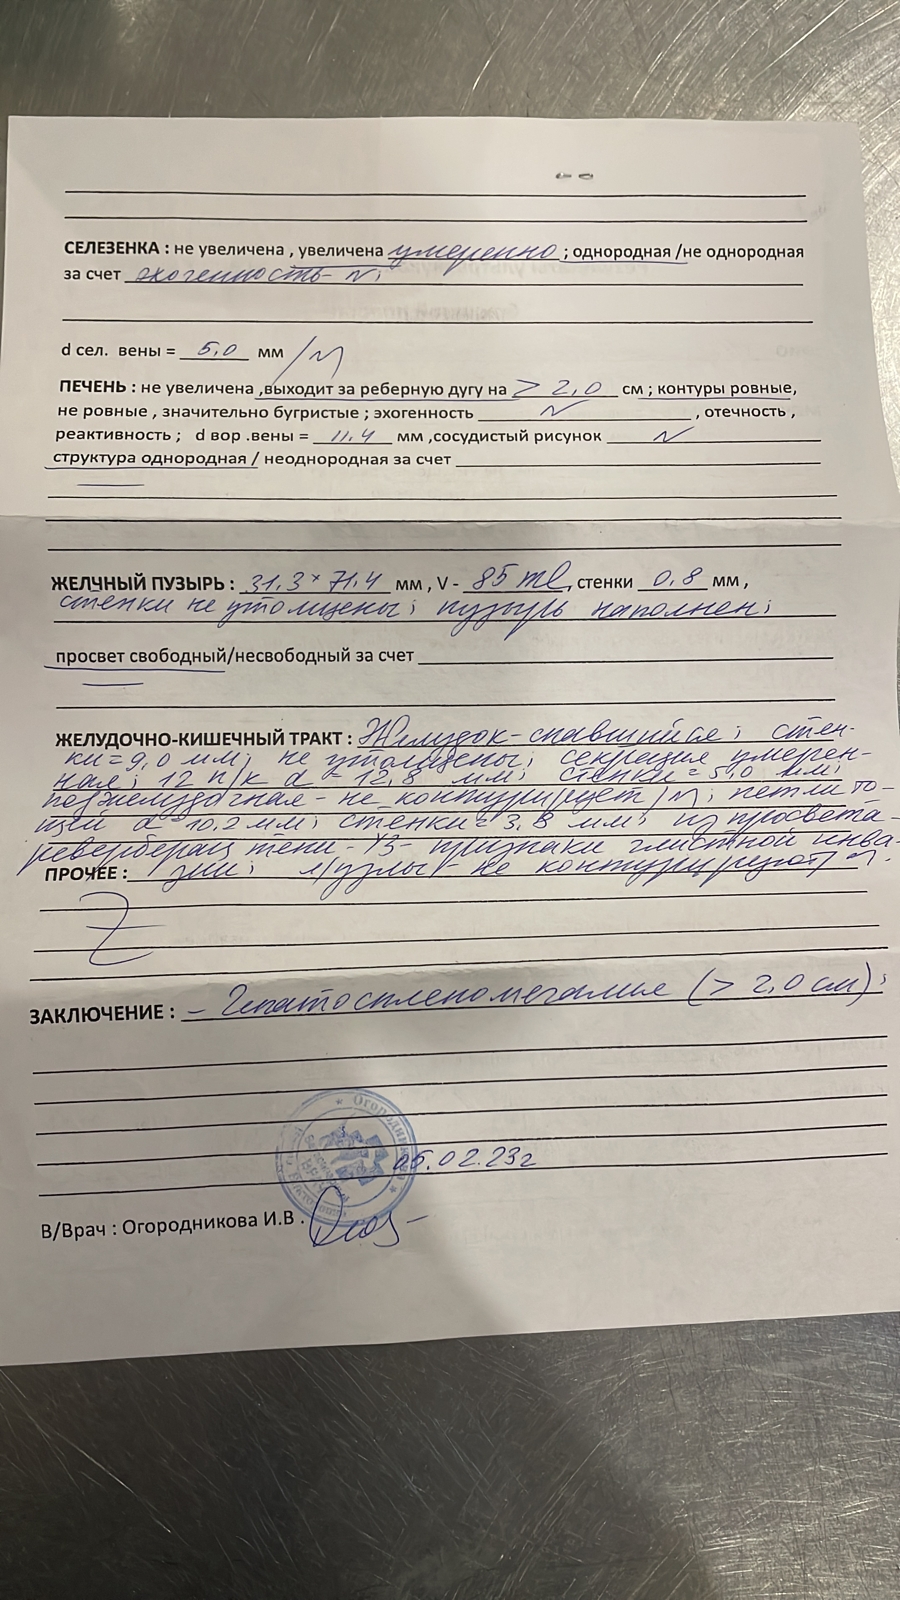 СЕЛЕЗЕНКА : не увеличена , увеличена умеренно ; однородная /не однородная
за счет эхогенность N;
d сел. вены = 5,0 мм /N
ПЕЧЕНЬ : не увеличена ,выходит за реберную дугу на > 2,0 см ; контуры ровные,
не ровные , значительно бугристые ; эхогенность N , отечность ,
реактивность ; d вор .вены = 11.4 мм ,сосудистый рисунок N
структура однородная / неоднородная за счет
ЖЕЛЧНЫЙ ПУЗЫРЬ : 31,3 × 71,4 мм , V - 85 ml, стенки 0,8 мм ,
стенки не утолщены; пузырь наполнен;
просвет свободный/несвободный за счет
ЖЕЛУДОЧНО-КИШЕЧНЫЙ ТРАКТ : Желудок - спавшийся; стен-
ки = 9,0 мм; не утолщены; секреция умерен-
ная; 12 п/к d = 12,8 мм; стенки = 5,0 мм;
поджелудочная - не контурирует/N; петли то-
щей d = 10.2 мм; стенки = 3,8 мм; из просвета -
реверберац тени - УЗ- признаки глистной инва-
ПРОЧЕЕ : зии; л/узлы - не контурируют/N.
Z
ЗАКЛЮЧЕНИЕ : - Гепатоспленомегалия (> 2,0 см);
Огородникова
05.02.23г
В/Врач : Огородникова И.В .